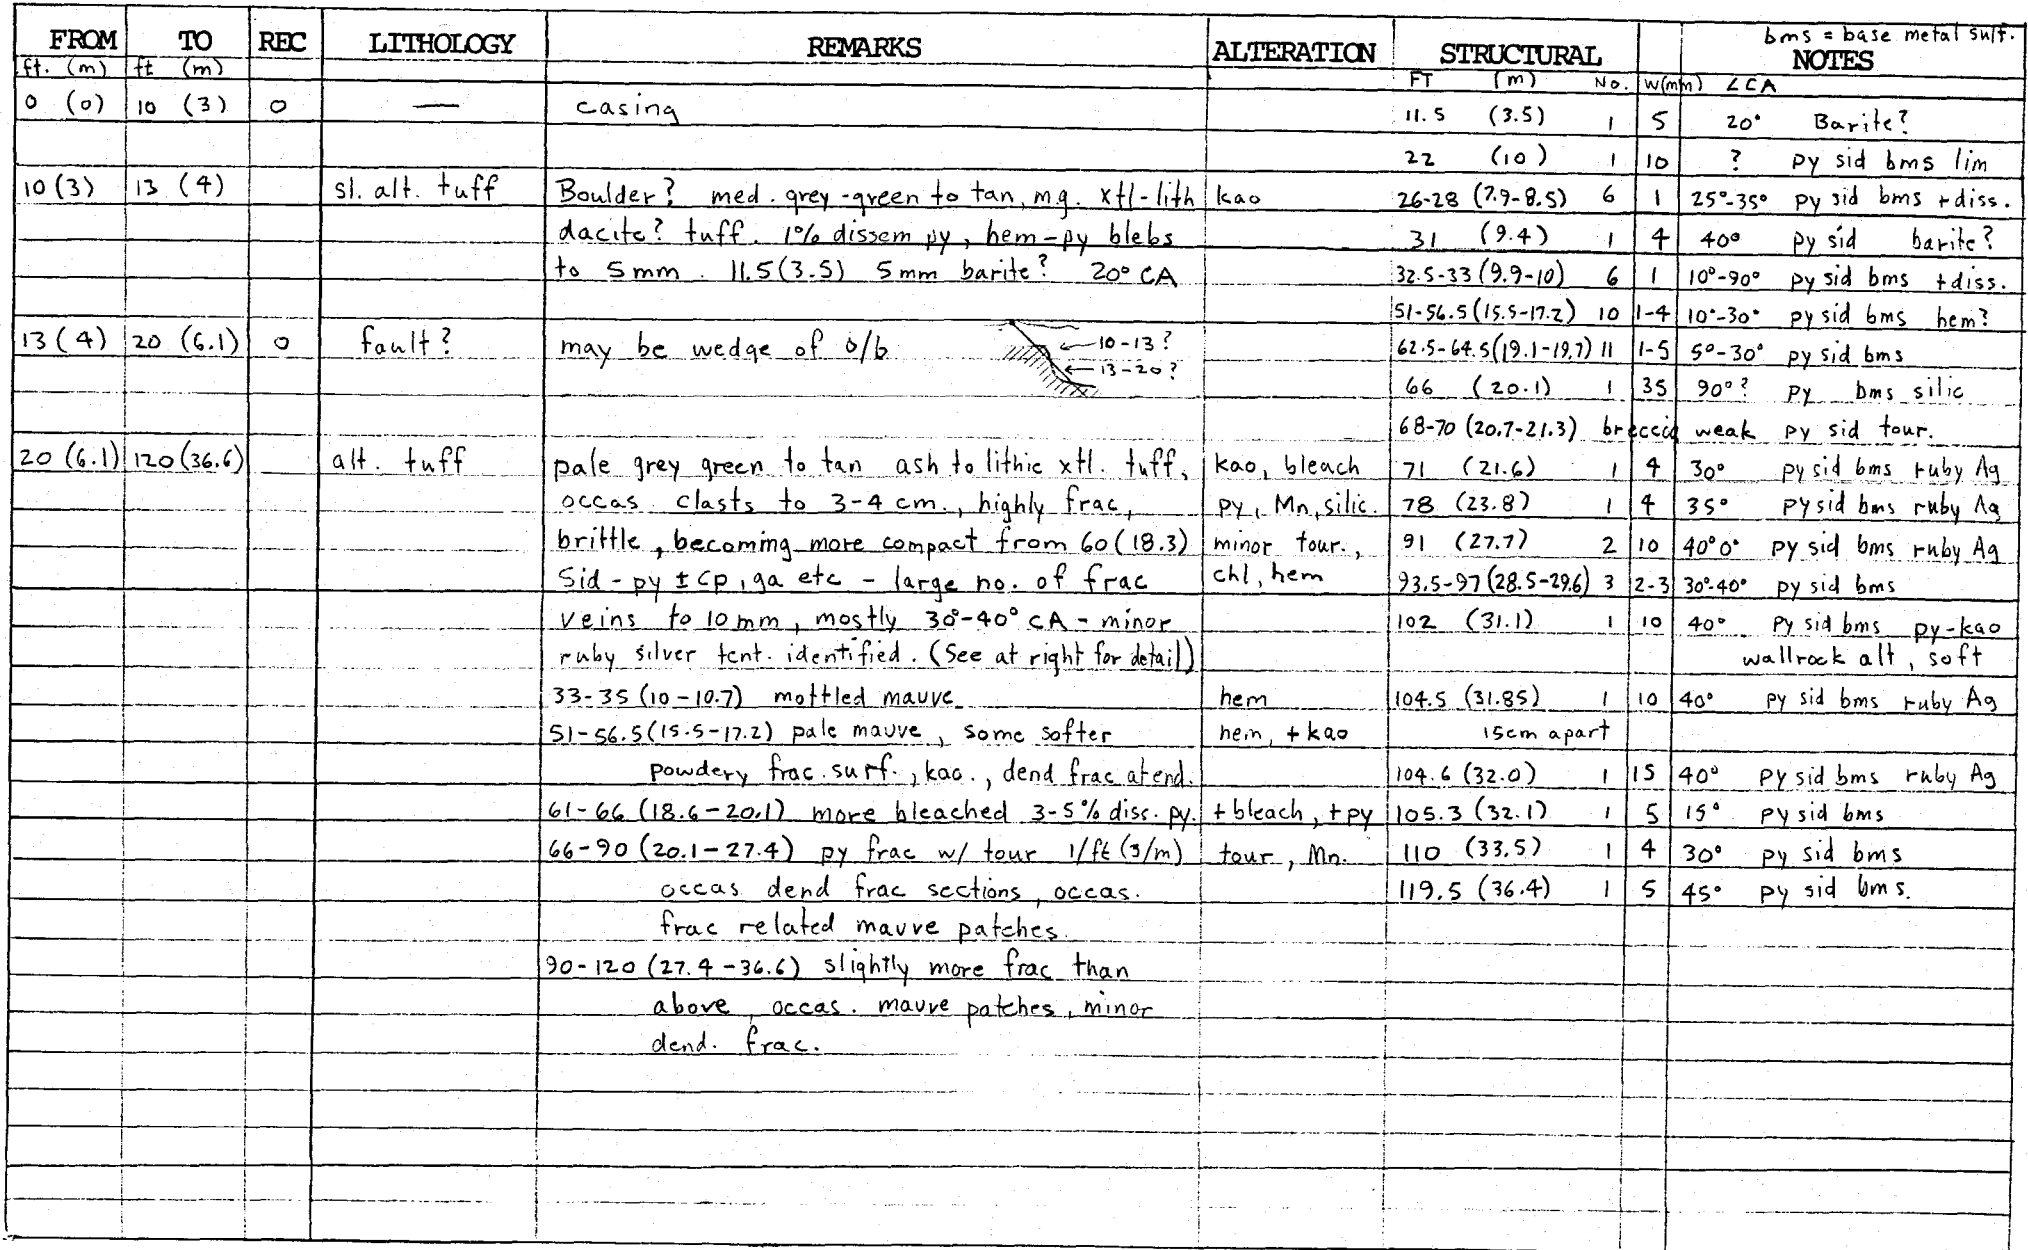 bms = base metal sulf.
FROM TO REC LITHOLOGY REMARKS ALTERATION STRUCTURAL NOTES
ft. (m) ft (m) FT (m) No. W(mm) ∠CA
0 (0) 10 (3) 0 — casing 11.5 (3.5) 1 5 20° Barite?
22 (10) 1 10 ? py sid bms lim
10 (3) 13 (4) sl. alt. tuff Boulder? med. grey-green to tan, mg. xtl-lith kao 26-28 (7.9-8.5) 6 1 25°-35° py sid bms + diss.
dacite? tuff. 1% dissem py, hem-py blebs 31 (9.4) 1 4 40° py sid barite?
to 5mm. 11.5(3.5) 5mm barite? 20° CA 32.5-33 (9.9-10) 6 1 10°-90° py sid bms + diss.
51-56.5 (15.5-17.2) 10 1-4 10°-30° py sid bms hem?
13 (4) 20 (6.1) 0 fault? may be wedge of o/b ←10-13? 62.5-64.5 (19.1-19.7) 11 1-5 5°-30° py sid bms
←13-20?
66 (20.1) 1 35 90°? py bms silic
68-70 (20.7-21.3) breccia weak py sid tour.
20 (6.1) 120 (36.6) alt. tuff pale grey green to tan ash to lithic xtl. tuff, kao, bleach 71 (21.6) 1 4 30° py sid bms ruby Ag
occas. clasts to 3-4 cm., highly frac, py, Mn, silic. 78 (23.8) 1 4 35° py sid bms ruby Ag
brittle, becoming more compact from 60 (18.3) minor tour., 91 (27.7) 2 10 40°0° py sid bms ruby Ag
Sid - py ± cp, ga etc - large no. of frac chl, hem 93.5-97 (28.5-29.6) 3 2-3 30°-40° py sid bms
veins to 10 mm, mostly 30°-40° CA - minor 102 (31.1) 1 10 40° py sid bms py-kao
ruby silver tent. identified. (See at right for detail) wallrock alt, soft
33-35 (10-10.7) mottled mauve hem 104.5 (31.85) 1 10 40° py sid bms ruby Ag
51-56.5 (15.5-17.2) pale mauve, some softer hem, + kao 15cm apart
powdery frac. surf., kao., dend frac at end. 104.6 (32.0) 1 15 40° py sid bms ruby Ag
61-66 (18.6-20.1) more bleached 3-5% diss. py. + bleach, + py 105.3 (32.1) 1 5 15° py sid bms
66-90 (20.1-27.4) py frac w/ tour 1/ft (3/m) tour, Mn. 110 (33.5) 1 4 30° py sid bms
occas dend frac sections, occas. 119.5 (36.4) 1 5 45° py sid bms.
frac related mauve patches.
90-120 (27.4-36.6) slightly more frac than
above, occas. mauve patches, minor
dend. frac.